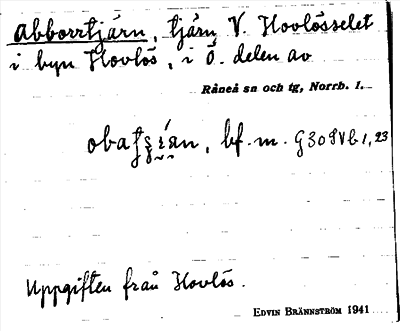 Abborrtjärn, tjärn V. Hovlösselet
i byn Hovlös, i Ö. delen av
Råneå sn och tg, Norrb. l.
bf. m.
Uppgiften från Hovlös.
EDVIN BRÄNNSTRÖM 1941